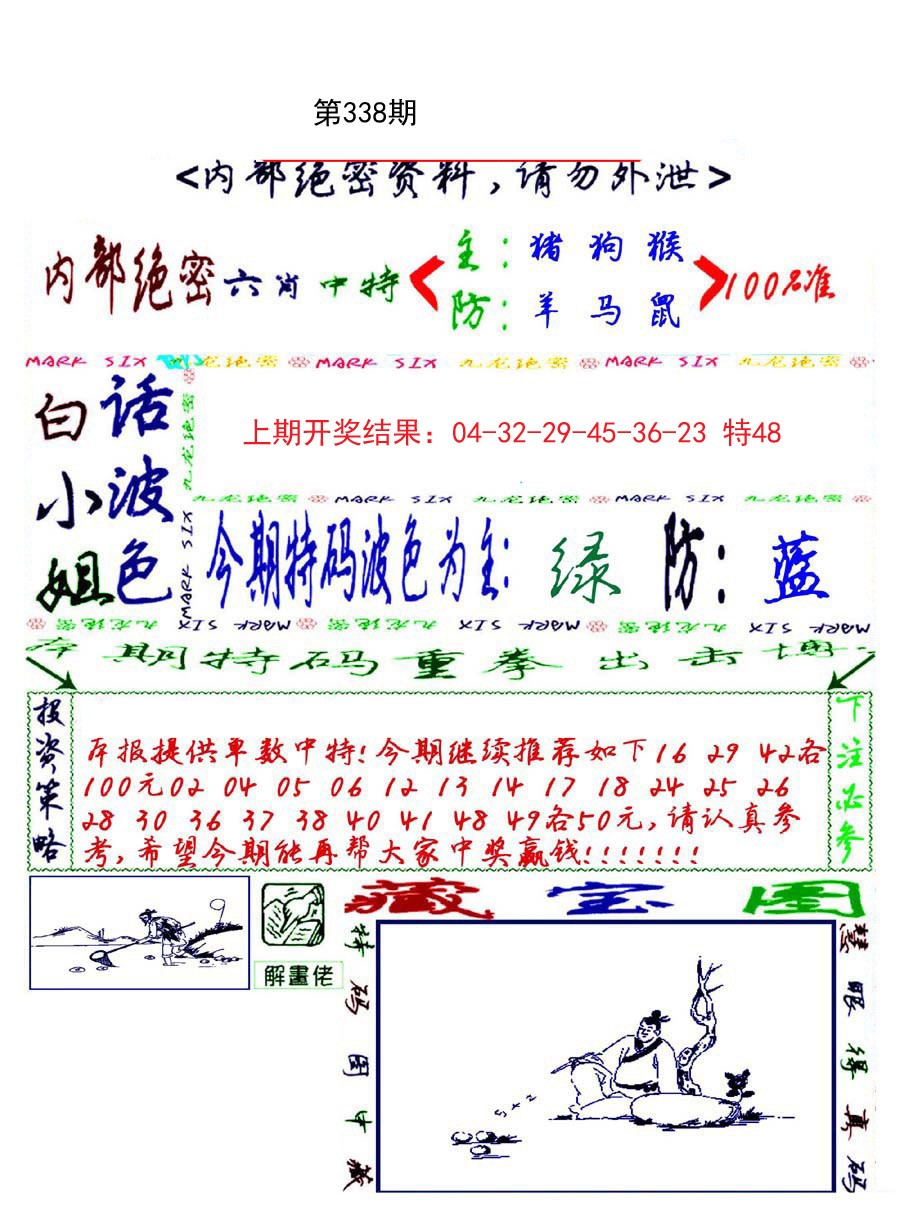 第338期
<内部绝密资料,请勿外泄>
内部绝密六肖中特
主:猪狗猴
防:羊马鼠
100%准
MARK SIX 九龙绝密 MARK SIX 九龙绝密 MARK SIX 九龙绝密
白小姐
话波色
九龙绝密 MARK SIX
上期开奖结果：04-32-29-45-36-23 特48
九龙绝密 MARK SIX 九龙绝密 MARK SIX 九龙绝密
今期特码波色为主:绿 防:蓝
九龙绝密 MARK SIX 九龙绝密 MARK SIX 九龙绝密 MARK SIX
期特码重拳出击博
投资策略
本报提供单数中特!今期继续推荐如下16 29 42各
100元02 04 05 06 12 13 14 17 18 24 25 26
28 30 36 37 38 40 41 48 49各50元,请认真参
考,希望今期能再帮大家中奖赢钱!!!!!!!
下注必参
解畫佬
藏宝图
特码图中藏
5x2
慧眼得真码